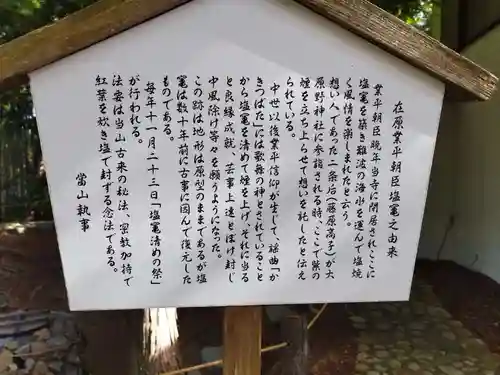 在原業平朝臣塩竃之由来
業平朝臣晩年当寺に閑居されここに
塩竃を築き難波の海水を運んで塩焼
く風情を楽しまれたと云う。
想い人であった二条后(藤原高子)が大
原野神社に参詣される時、ここで紫の
煙を立ち上らせて想いを託したと伝え
られている。
中世以後業平信仰が生じて、謡曲「か
きつばた」には歌舞の神とされていること
から塩竃を清めて煙を上げ、それに当る
と良縁成就、芸事上達とぼけ封じ
中風除け等々を願うようになった。
この跡は地形は原型のままであるが塩
竃は数十年前に古事に因んで復元した
ものである。
毎年十一月二十三日「塩竃清めの祭」
が行われる。
法要は当山古来の秘法、密教加持で
紅葉を炊き塩で封する念法である。
當山執事